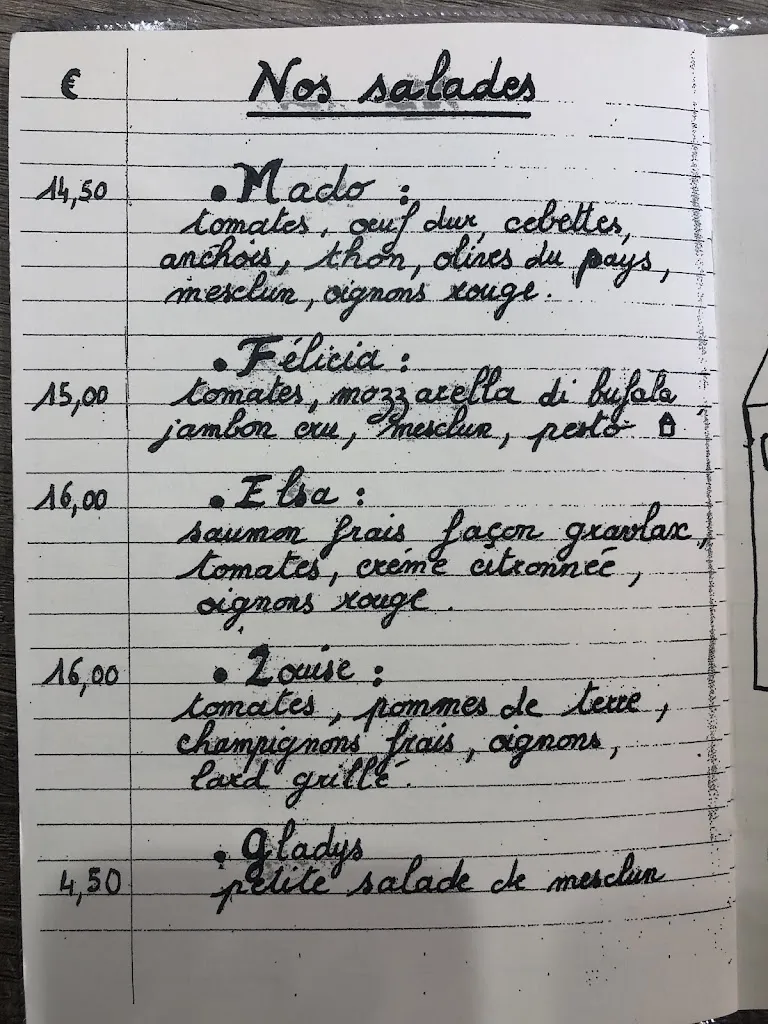 € Nos salades
14,50 • Mado :
tomates, œuf dur, cebettes,
anchois, thon, olives du pays,
mesclun, oignons rouge.
• Félicia :
15,00 tomates, mozzarella di bufala
jambon cru, mesclun, pesto
16,00 • Elsa :
saumon frais façon gravlax,
tomates, crème citronnée,
oignons rouge.
16,00 • Louise :
tomates, pommes de terre,
champignons frais, oignons,
lard grillé.
• Gladys
4,50 petite salade de mesclun